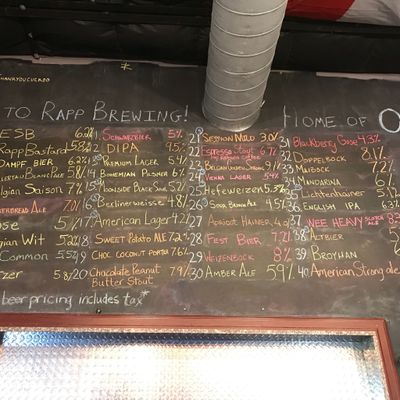 THANKYOUCUKOO
TO RAPP BREWING!
HOME OF O
ESB 6.2%
RAPPBASTARD 5.8%
DAMPF BIER 6.2%
BLANC PALE 5.8%
Belgian SAISON 7%
GINGERBREAD ALE 7.0%
Gose 5%
Belgian WIT 5.2%
COMMON 5.5%
5.8%
11 SCHWARZBIER 5%
12 DIPA 9.5%
13 PREMIUM LAGER 5.4
14 BOHEMIAN PILSNER 6%
15 MOONSIDE BLACK SOUR 5.2
16 BERLINERWEISSE 4.8%
17 AMERICAN LAGER 4.2%
18 SWEET POTATO ALE 7.2%
19 CHOC COCONUT PORTER 7.6%
20 CHOCOLATE PEANUT
BUTTER STOUT 7.9%
21 SESSION MILD 3.0%
22 ESPRESSO STOUT 6.7%
23
24 VIENNA LAGER 5.4%
25 HEFEWEIZEN 5.3%
26 SOUR BROWN ALE 4.5%
27 APRICOT
28 FEST BIER 7.2%
29 WEIZENBOCK 8%
30 AMBER ALE 5.9%
31 Blackberry Gose 4.3%
32 DOPPELSOCK 8.1%
33 MAIBOCK 7.2%
34 MANDARINA
35 Lichtenhainer
36 ENGLISH IPA 6.3%
37 WEE HEAVY
38 ALTBIER
39 BROYHAN
40 AMERICAN STRONG ALE
beer pricing includes tax*